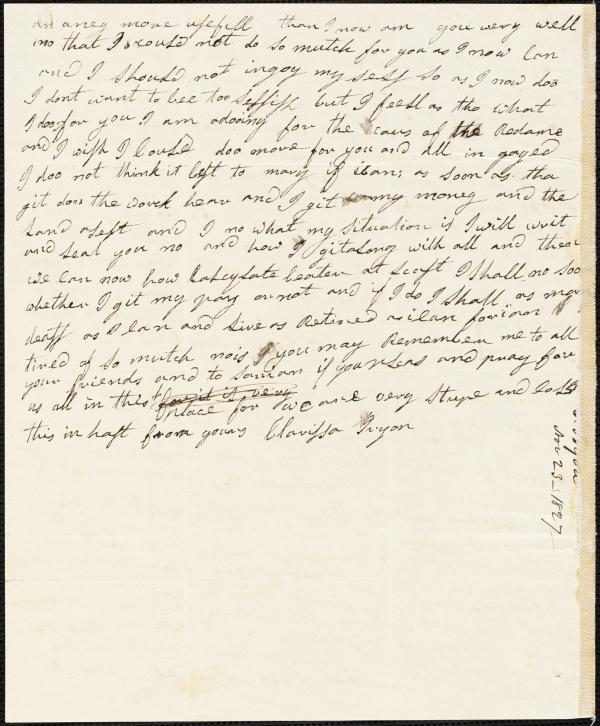 an aney more usefull than I now am you very well
no that I couse not do so mutch for you as I now Can
and I should not ingoy my self so as I now doo
I dont want to bee too selfish but I feell as tho what
I doo for you I am adooing for the caus of the Redame
and I wish I could doo more for you and all in gaged
I doo not think it left to marry if ican; as soon as tha
git don the worck hear and I git my money and the
Land aseft and I no what my situation is I will writ
and leat you no and how I gitalong with all and then
we Can now how Calcylate beater at Scoft I shall no soo
whether I git my pay or not and if I do I shall as my
deaff as I Can and Live as Retired as ican for iam
tired of so mutch nois you may Remember me to all
your friends and to if you pleas and pray for
us all in this for it is very
place for we are very stupe and Cold
this in haft from yours Clarissa Pryor
Nov 23_1827